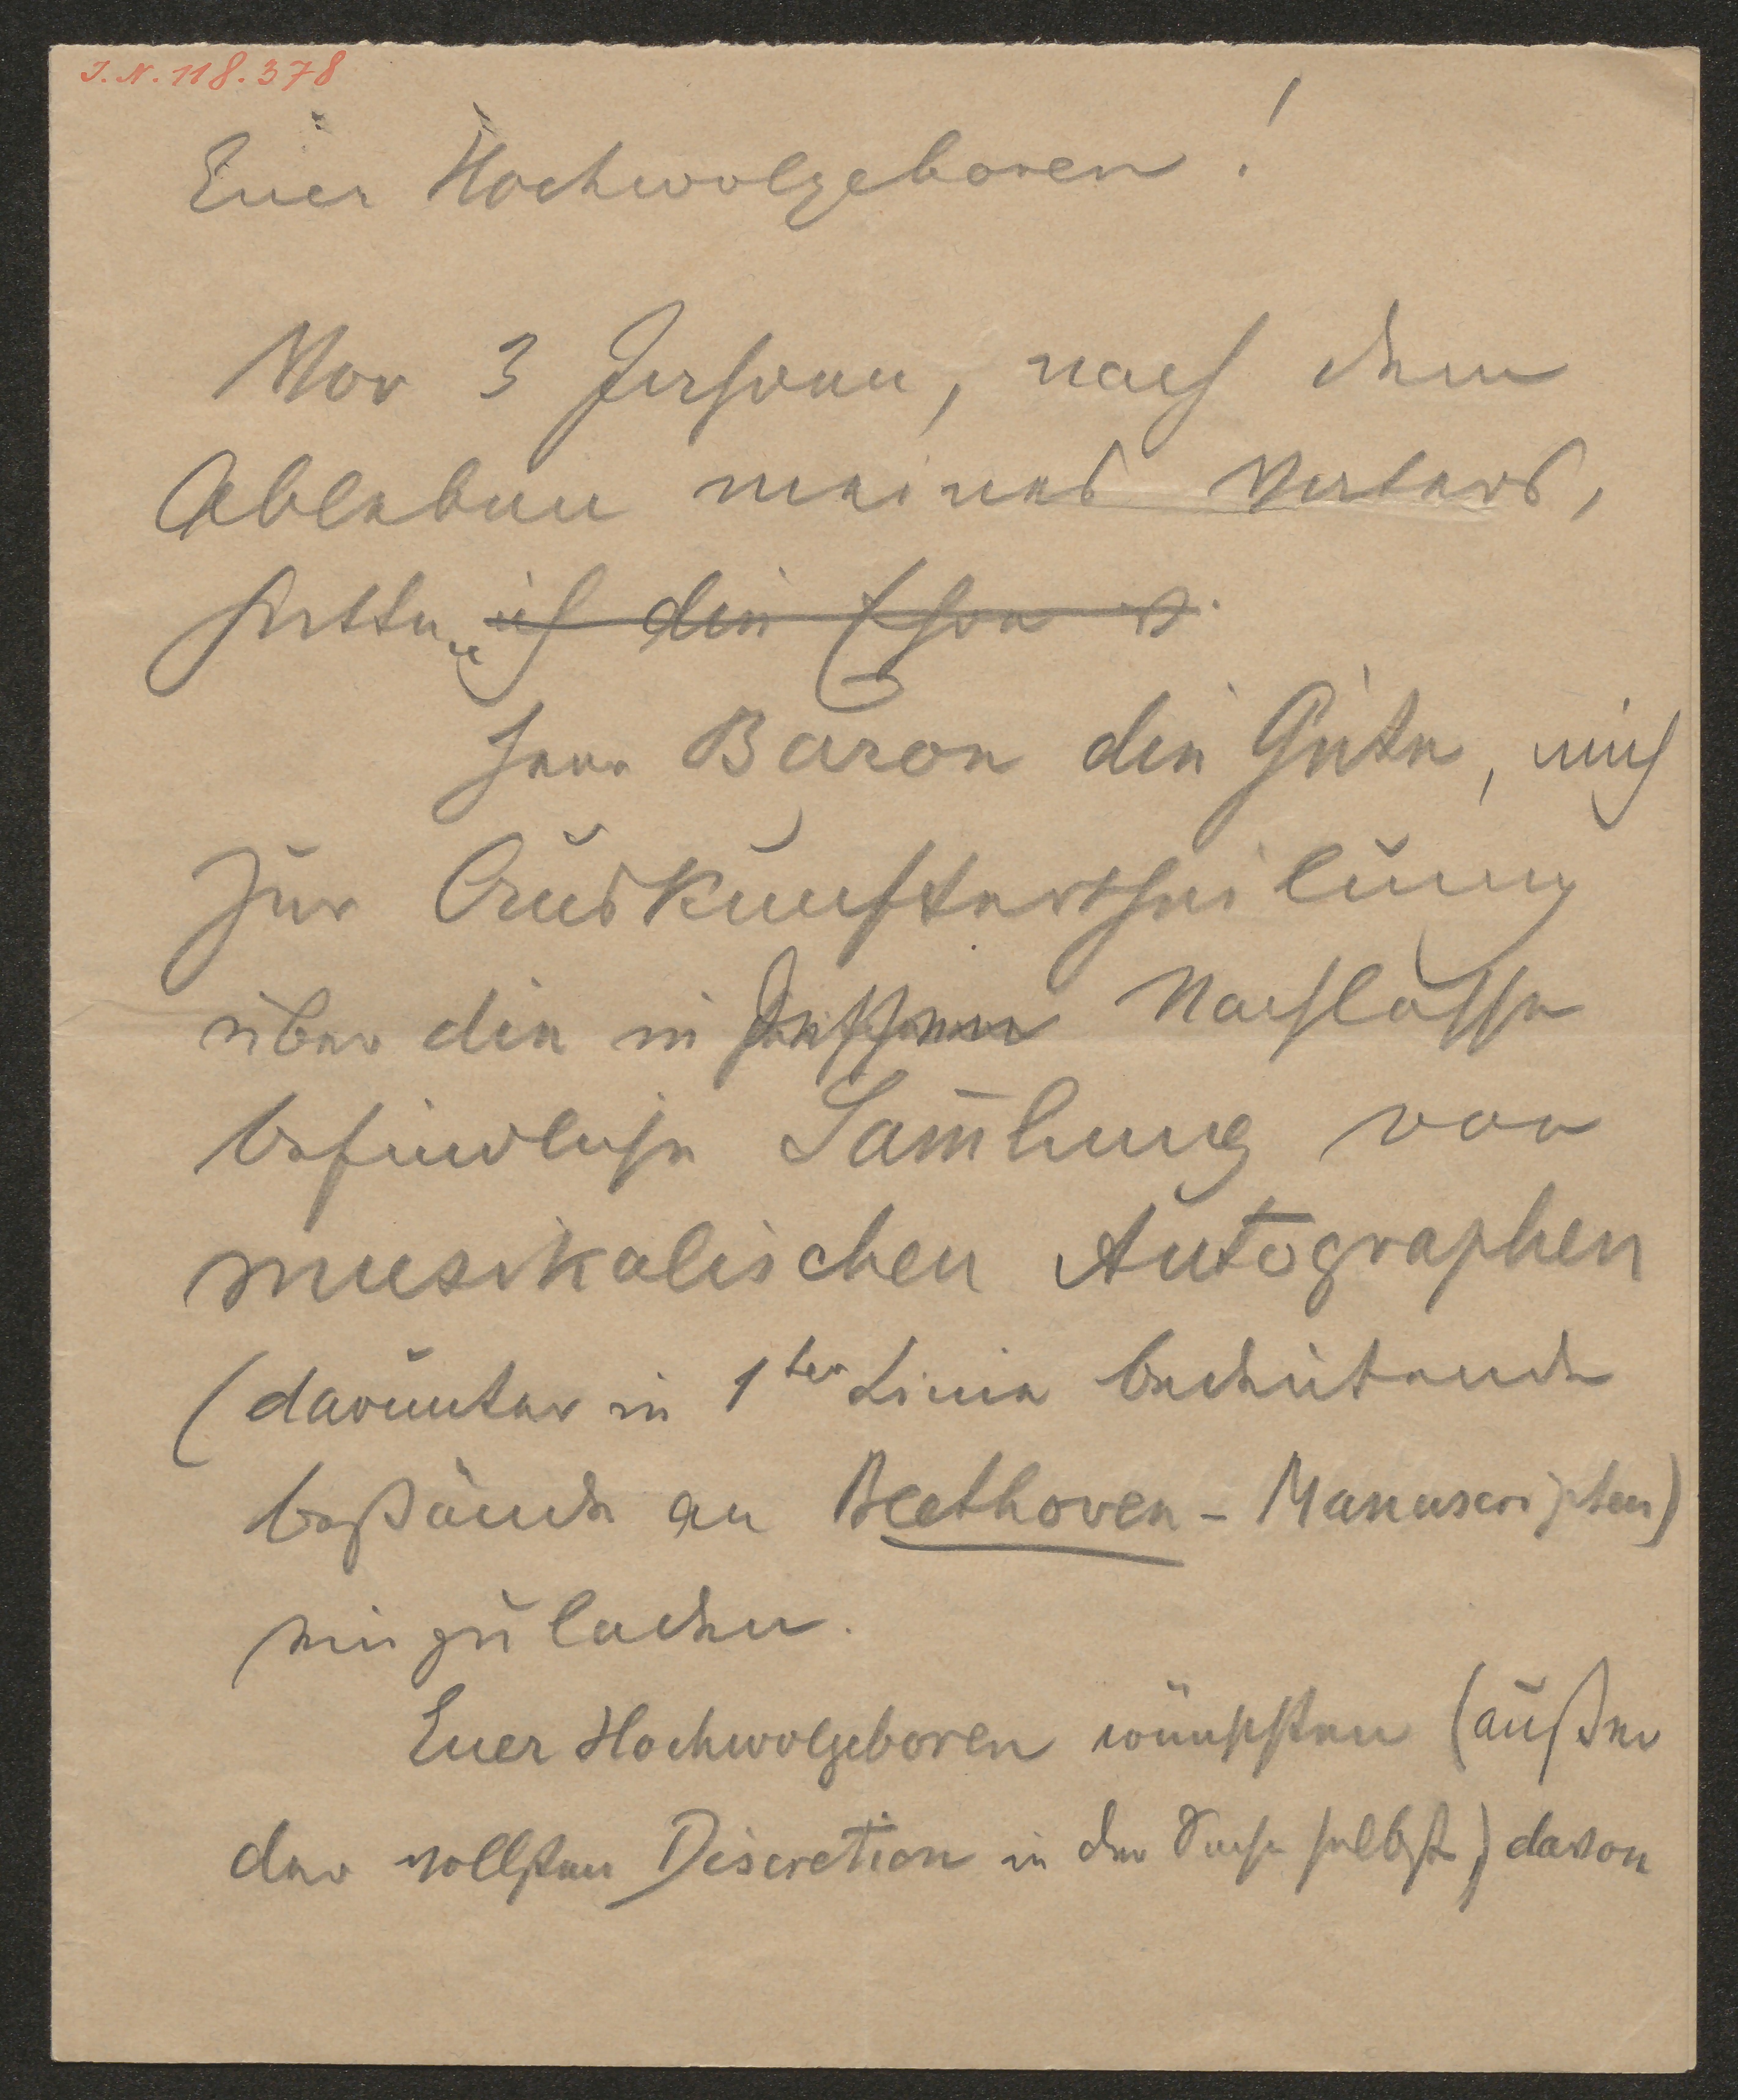 I. N. 118.378
Euer Hochwolgeboren!
Vor 3 Jahren, nach dem
Ableben meines Vaters,
hatten ich die Ehre
Herr Baron die Güte, mich
zur Auskunftertheilung
über die in Nachlasse
befindliche Sam̄lung von
musikalischen Autographen
(darunter in 1ter Linie bedeutende
Bestände an Beethoven-Manuscripten)
einzuladen.
Euer Hochwolgeboren wünschten (außer
der vollsten Discretion in der Sache selbst) davon